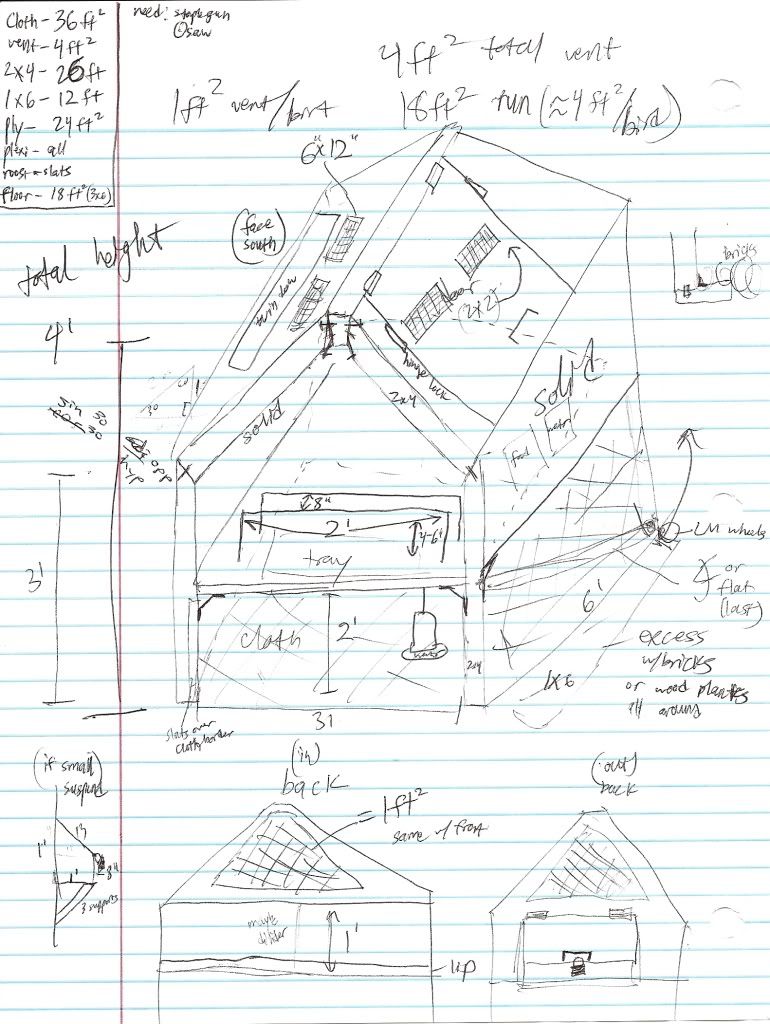 Cloth - 36 ft²
vent - 4 ft²
2x4 - 26 ft
1x6 - 12 ft
ply - 24 ft²
plexi - all
roost + slats
floor - 18 ft² (3x6)
need: staple gun
saw
4 ft² total vent
1 ft² vent/bird
18 ft² run (≈4 ft²/bird)
6"x12"
(face south)
window
door
(2x2)
bricks
total height
4'
hinge lock
2x4
solid
solid
sin 30
30
opp
hyp
food
8"
2'
4-6"
tray
3'
6'
LM wheels
or flat (last)
cloth
2'
water
2x4
1x6
excess w/bricks
or wood planks
all around
3'
slats over cloth border
(if small)
suspend
1'
1'
8"
3 supports
(in)
back
= 1 ft²
same w/ front
maybe divider
1'
lip
(out)
back